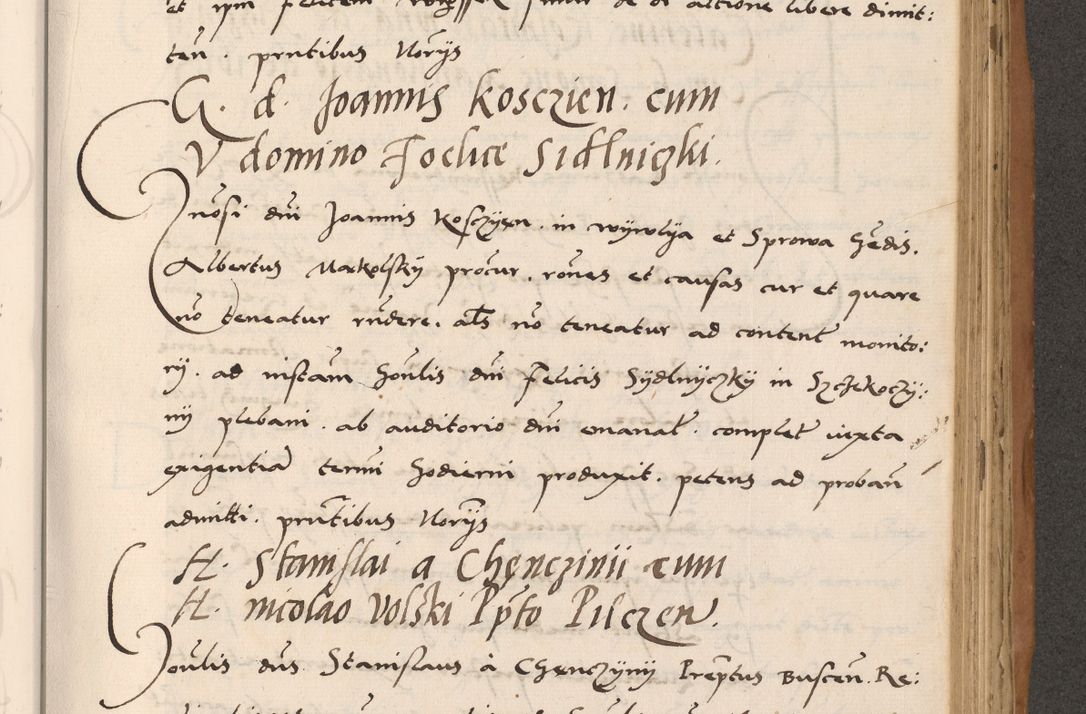 et ipm felicem de et actione libere dimit:
ten. pntibus Norijs
G. d. Joannis Kosczien. cum
V domino Foelice Sidlniczki.
Gnosi dni Joannis Kosczyen. in wywlya et Sprowa hedis.
Albertus Makolsky procur. rones et causas cur et quare
no teneatur rndere. als no teneatur ad content monito:
rij. ad instam honlis dni Felicis Sydlnyczky in Szczekoczy:
nij plebani. ab auditorio dni emanat. complet iuxta
exigentia termi hodierni produxit. petens ad proban
admitti. pntibus Norijs
H. Stanislai a Chęnczinii cum
H. nicolao Volski Ppto Pilczen.
Honlis dns Stanislaus à Chęnczynij Preptus Buscen. Re: